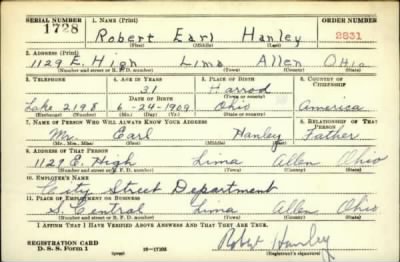 SERIAL NUMBER 1. NAME (Print) ORDER NUMBER
1728 Robert Earl Hanley 2831
(First) (Middle) (Last)
2. ADDRESS (Print)
1129 E. High Lima Allen Ohio
(Number and street or R. F. D. number) (Town) (County) (State)
3. TELEPHONE 4. AGE IN YEARS 5. PLACE OF BIRTH 6. COUNTRY OF CITIZENSHIP
31 Harrod
DATE OF BIRTH (Town or county)
Lake 2198 6-24-1909 Ohio America
(Exchange) (Number) (Mo.) (Day) (Yr.) (State or country)
7. NAME OF PERSON WHO WILL ALWAYS KNOW YOUR ADDRESS 8. RELATIONSHIP OF THAT PERSON
Mr. Earl Hanley Father
(Mr., Mrs., Miss) (First) (Middle) (Last)
9. ADDRESS OF THAT PERSON
1129 E. High Lima Allen Ohio
(Number and street or R. F. D. number) (Town) (County) (State)
10. EMPLOYER'S NAME
City Street Department
11. PLACE OF EMPLOYMENT OR BUSINESS
S. Central Lima Allen Ohio
(Number and street or R. F. D. number) (Town) (County) (State)
I AFFIRM THAT I HAVE VERIFIED ABOVE ANSWERS AND THAT THEY ARE TRUE.
REGISTRATION CARD
D. S. S. Form 1 (over) 16-17105 Robert Hanley
(Registrant's signature)